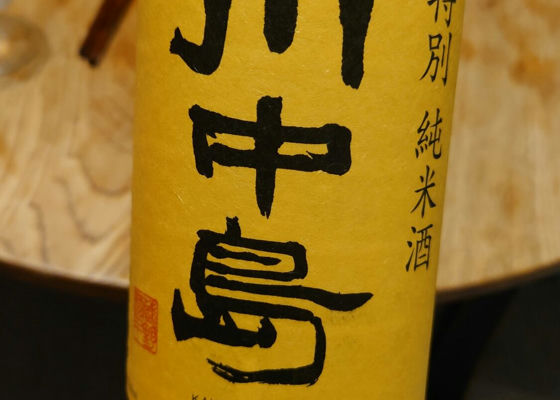 川中島
特別 純米酒